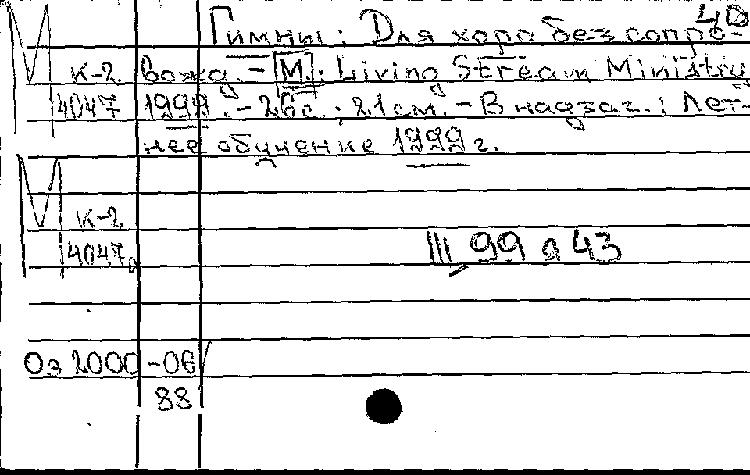 40
Гимны: Для хора без сопро-
М к-2 вожд. - М.: Living Stream Ministry
4047 1999. - 26с.; 21 см. - В надзаг.: Лет-
нее обучение 1999 г.
М к-2
4047а
III 99 а 43
Оз 2000-06
88